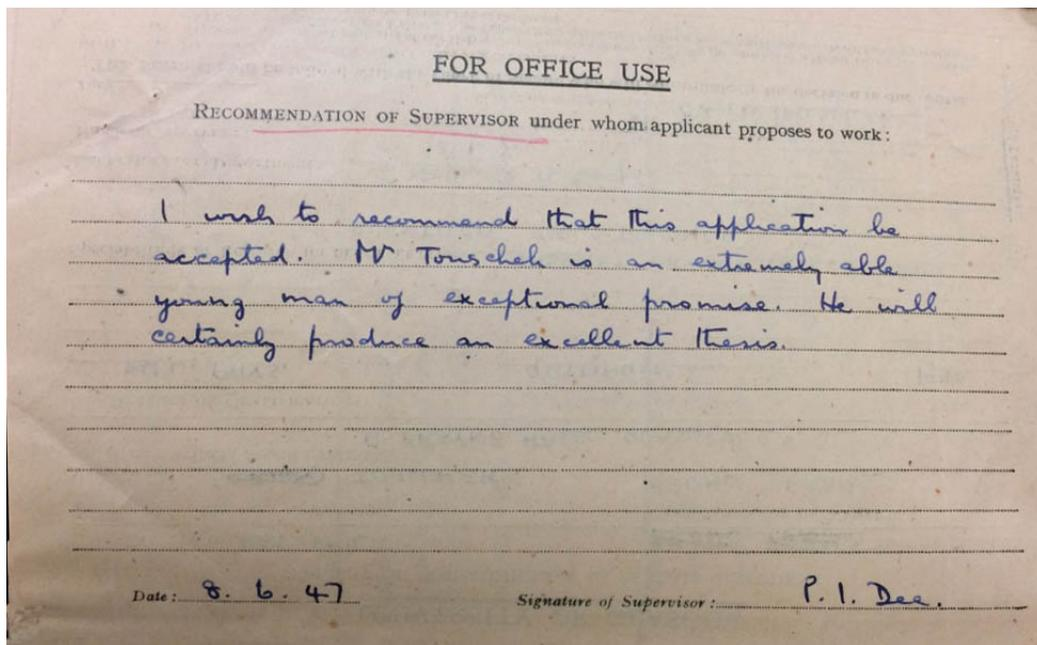 FOR OFFICE USE
RECOMMENDATION OF SUPERVISOR under whom applicant proposes to work:
I wish to recommend that this application be
accepted. Mr Touschek is an extremely able
young man of exceptional promise. He will
certainly produce an excellent thesis.
Date: 8. 6. 47 Signature of Supervisor: P. I. Dee.